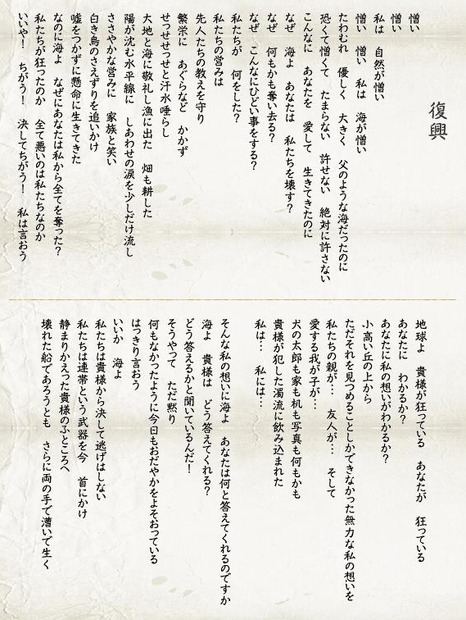 復興
憎い
憎い
私は 自然が憎い
憎い 憎い 私は 海が憎い
たわむれ 優しく 大きく 父のような海だったのに
恐くて憎くて たまらない 許せない 絶対に許さない
こんなに あなたを 愛して 生きてきたのに
なぜ 海よ あなたは 私たちを壊す?
なぜ 何もかも奪い去る?
なぜ こんなにひどい事をする?
私たちが 何をした?
私たちの営みは
先人たちの教えを守り
繁栄に あぐらなど かかず
せっせせっせと汗水唾らし
大地と海に敬礼し漁に出た 畑も耕した
陽が沈む水平線に しあわせの涙を少しだけ流し
ささやかな営みに 家族と笑い
白き鳥のさえずりを追いかけ
嘘をつかずに懸命に生きてきた
なのに海よ なぜにあなたは私から全てを奪った?
私たちが狂ったのか 全て悪いのは私たちなのか
いいや! ちがう! 決してちがう! 私は言おう
地球よ 貴様が狂っている あなたが 狂っている
あなたに わかるか?
あなたに私の想いがわかるか?
小高い丘の上から
ただそれを見つめることしかできなかった無力な私の想いを
私たちの親が… 友人が… そして
愛する我が子が…
犬の太郎も家も机も写真も何もかも
貴様が犯した濁流に飲み込まれた
私は… 私には…
そんな私の想いに海よ あなたは何と答えてくれるのですか
海よ 貴様は どう答えてくれる?
どう答えるかと聞いているんだ!
そうやって ただ黙り
何もなかったように今日もおだやかをよそおっている
はっきり言おう
いいか 海よ
私たちは貴様から決して逃げはしない
私たちは連帯という武器を今 首にかけ
静まりかえった貴様のふところへ
壊れた船であろうとも さらに両の手で漕いで生く